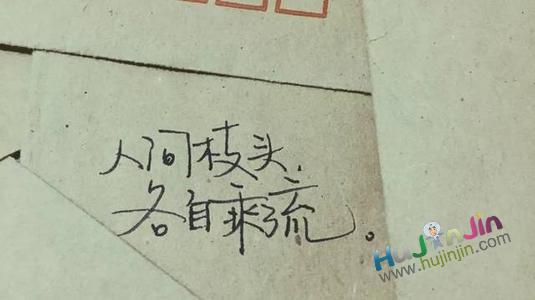 人间枝头，
各自乘流。
HuJinJin
www.hujinjin.com